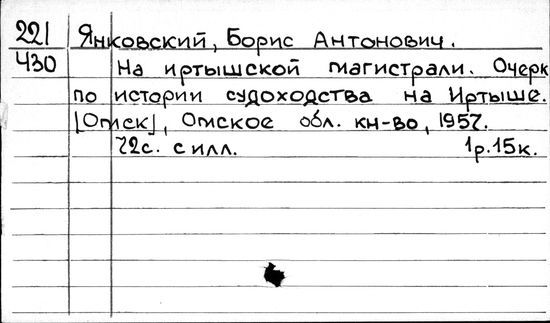 221 Янковский, Борис Антонович.
430 На иртышской магистрали. Очерк
по истории судоходства на Иртыше.
[Омск], Омское обл. кн-во, 1957.
72с. с илл. 1р.15к.